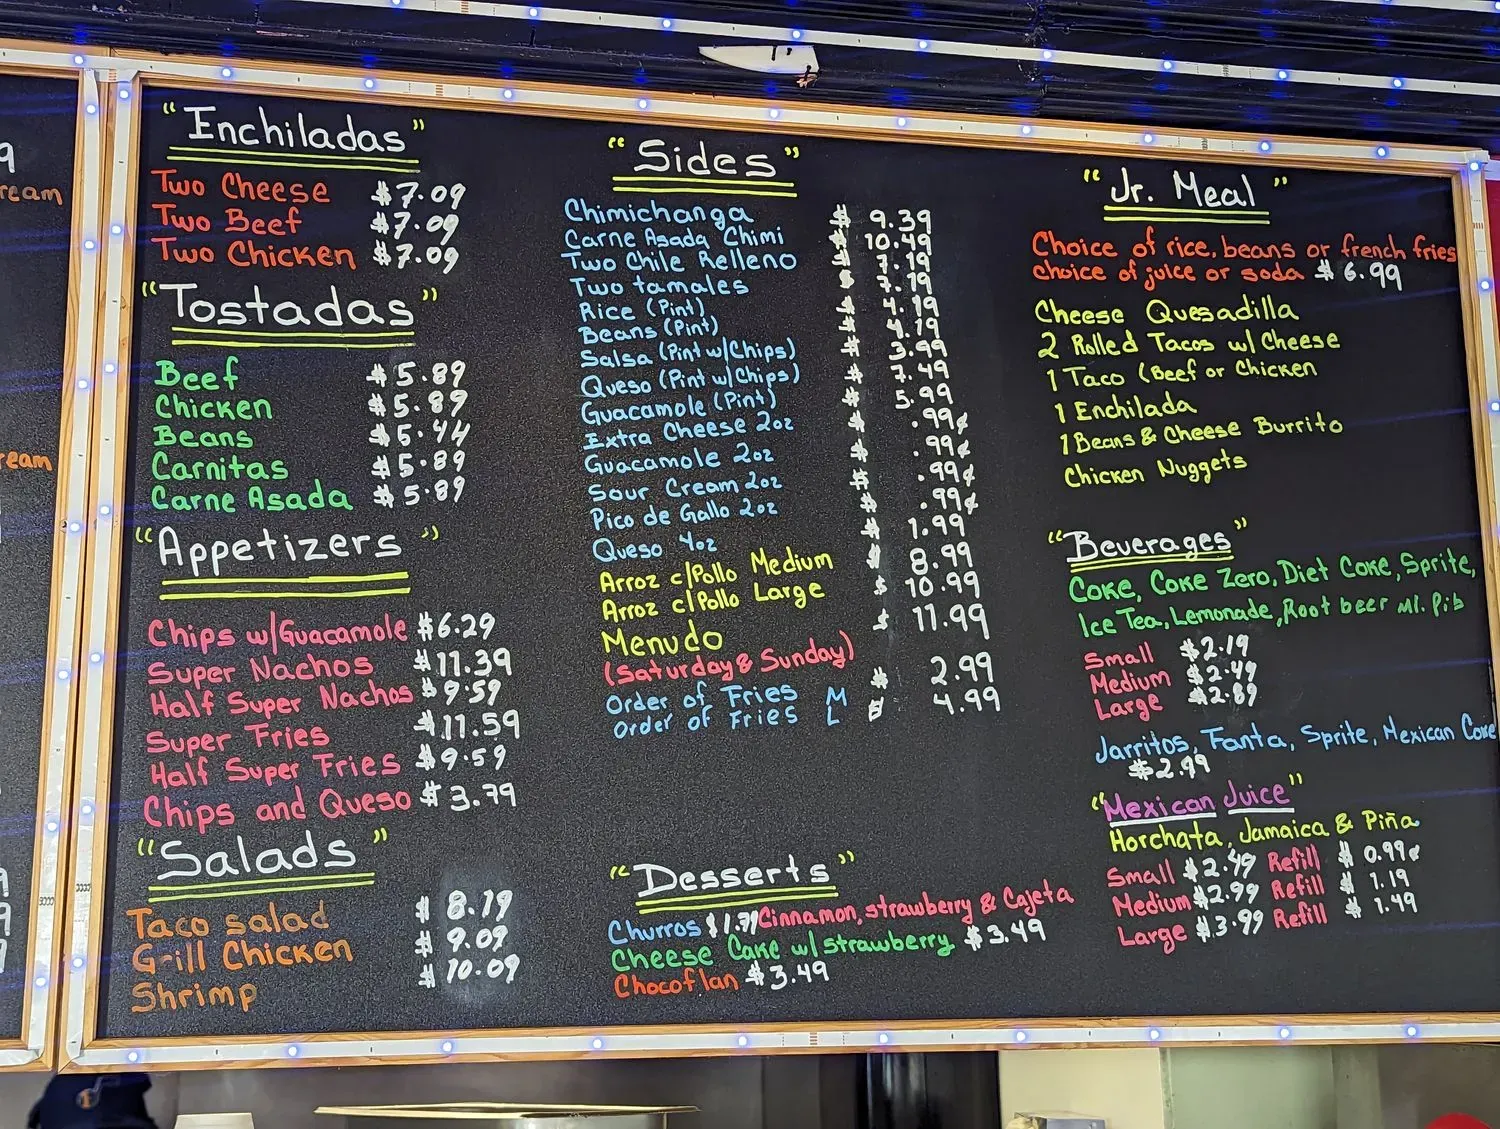 9
ream
ream
"Enchiladas"
Two Cheese $7.09
Two Beef $7.09
Two Chicken $7.09
"Tostadas"
Beef $5.89
Chicken $5.89
Beans $5.44
Carnitas $5.89
Carne Asada $5.89
"Appetizers"
Chips w/Guacamole $6.29
Super Nachos $11.39
Half Super Nachos $9.59
Super Fries $11.59
Half Super Fries $9.59
Chips and Queso $3.79
"Salads"
Taco salad $8.19
Grill Chicken $9.09
Shrimp $10.09
"Sides"
Chimichanga $9.39
Carne Asada Chimi $10.49
Two Chile Relleno $7.19
Two tamales $7.19
Rice (Pint) $4.19
Beans (Pint) $4.19
Salsa (Pint w/Chips) $3.99
Queso (Pint w/Chips) $7.49
Guacamole (Pint) $5.99
Extra Cheese 2oz $.99¢
Guacamole 2oz $.99¢
Sour Cream 2oz $.99¢
Pico de Gallo 2oz $.99¢
Queso 4oz $1.99
Arroz c/Pollo Medium $8.99
Arroz c/Pollo Large $10.99
Menudo $11.99
(Saturday & Sunday)
Order of Fries M $2.99
Order of Fries L $4.99
"Desserts"
Churros $1.79 Cinnamon, strawberry & Cajeta
Cheese Cake w/ strawberry $3.49
Chocoflan $3.49
"Jr. Meal"
Choice of rice, beans or french fries
choice of juice or soda $6.99
Cheese Quesadilla
2 Rolled Tacos w/ Cheese
1 Taco (Beef or Chicken
1 Enchilada
1 Beans & Cheese Burrito
Chicken Nuggets
"Beverages"
Coke, Coke Zero, Diet Coke, Sprite,
Ice Tea, Lemonade, Root beer Mr. Pib
Small $2.19
Medium $2.49
Large $2.89
Jarritos, Fanta, Sprite, Mexican Coke
$2.99
"Mexican Juice"
Horchata, Jamaica & Piña
Small $2.49 Refill $0.99¢
Medium $2.99 Refill $1.19
Large $3.99 Refill $1.49